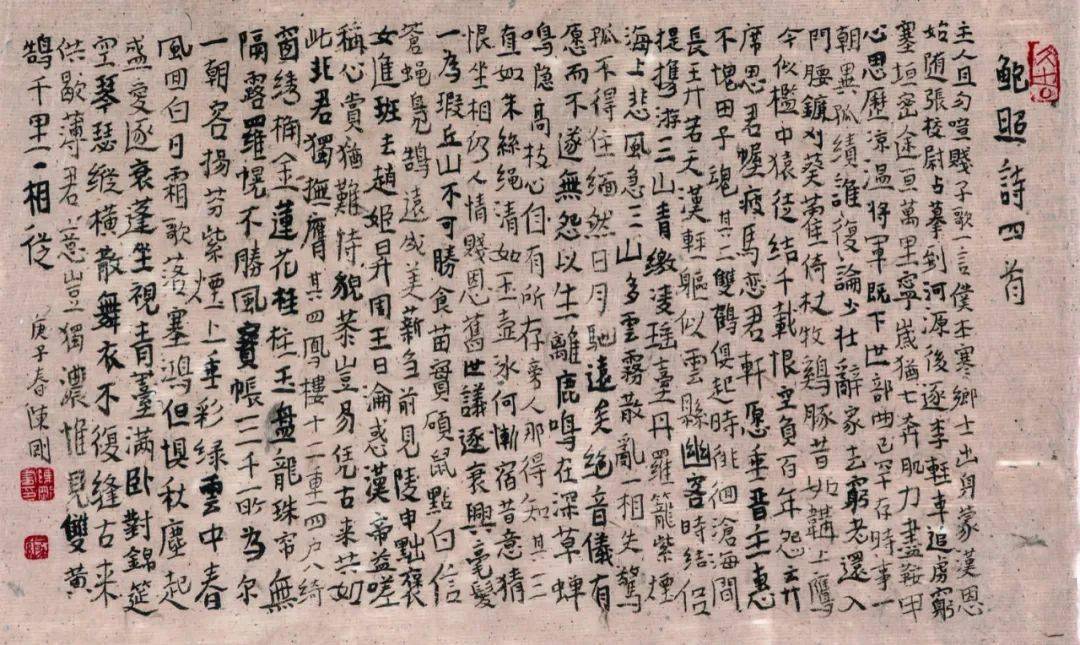 鮑照詩四首
主人且勿喧賤子歌一言僕本寒鄉士出身蒙漢恩
始随張校尉占募到河源後逐李軽車追虜窮
塞垣密途亘萬里寧歲猶七奔肌力盡鞍甲
心思歷涼温将軍既下世部曲已罕存時事一
朝異孤績誰復論少壯辭家去窮老還入
門腰鐮刈葵藿倚杖牧鷄豚昔如韝上鷹
今似檻中猿徒結千載恨空負百年怨弃
席思君幄疲馬恋君軒愿垂晋主惠
不愧田子魂其二雙鶴俱起時徘徊滄海間
長弄若天漢軽軀似雲縣幽客時结侣
提携游三山青缴凌瑶臺丹羅籠紫煙
海上悲風急三山多雲霧散亂一相失驚
孤不得住緬然日月馳遠矣絶音儀有
愿而不遂無怨以生離鹿鳴在深草蝉
鳴隐高枝心自有所存旁人那得知其三
直如朱絲绳清如玉壺冰何慚宿昔意猜
恨坐相仍人情賤恩舊世議逐衰興毫髮
一為瑕丘山不可勝食苗實碩鼠點白信
蒼蝇鳧鵠遠成美薪芻前見陵申黜襃
女進班去趙姬昇周王日淪惑漢帝益嗟
稱心賞猶難恃貌恭豈易凭古来共如
此非君獨撫膺其四鳳樓十二重四户八綺
窗绣桷金蓮花桂柱玉盤龍珠帘無
隔露羅幌不勝風寶帳三千所為尔
一朝容揚芬紫煙上垂彩绿雲中春
風回白日霜歌落塞鴻但懼秋塵起
盛愛逐衰蓬坐視青薹满卧對錦筵
空琴瑟縱横散舞衣不復縫古来
供歇薄君意豈獨濃惟見雙黄
鵠千里一相從
庚子春陳剛